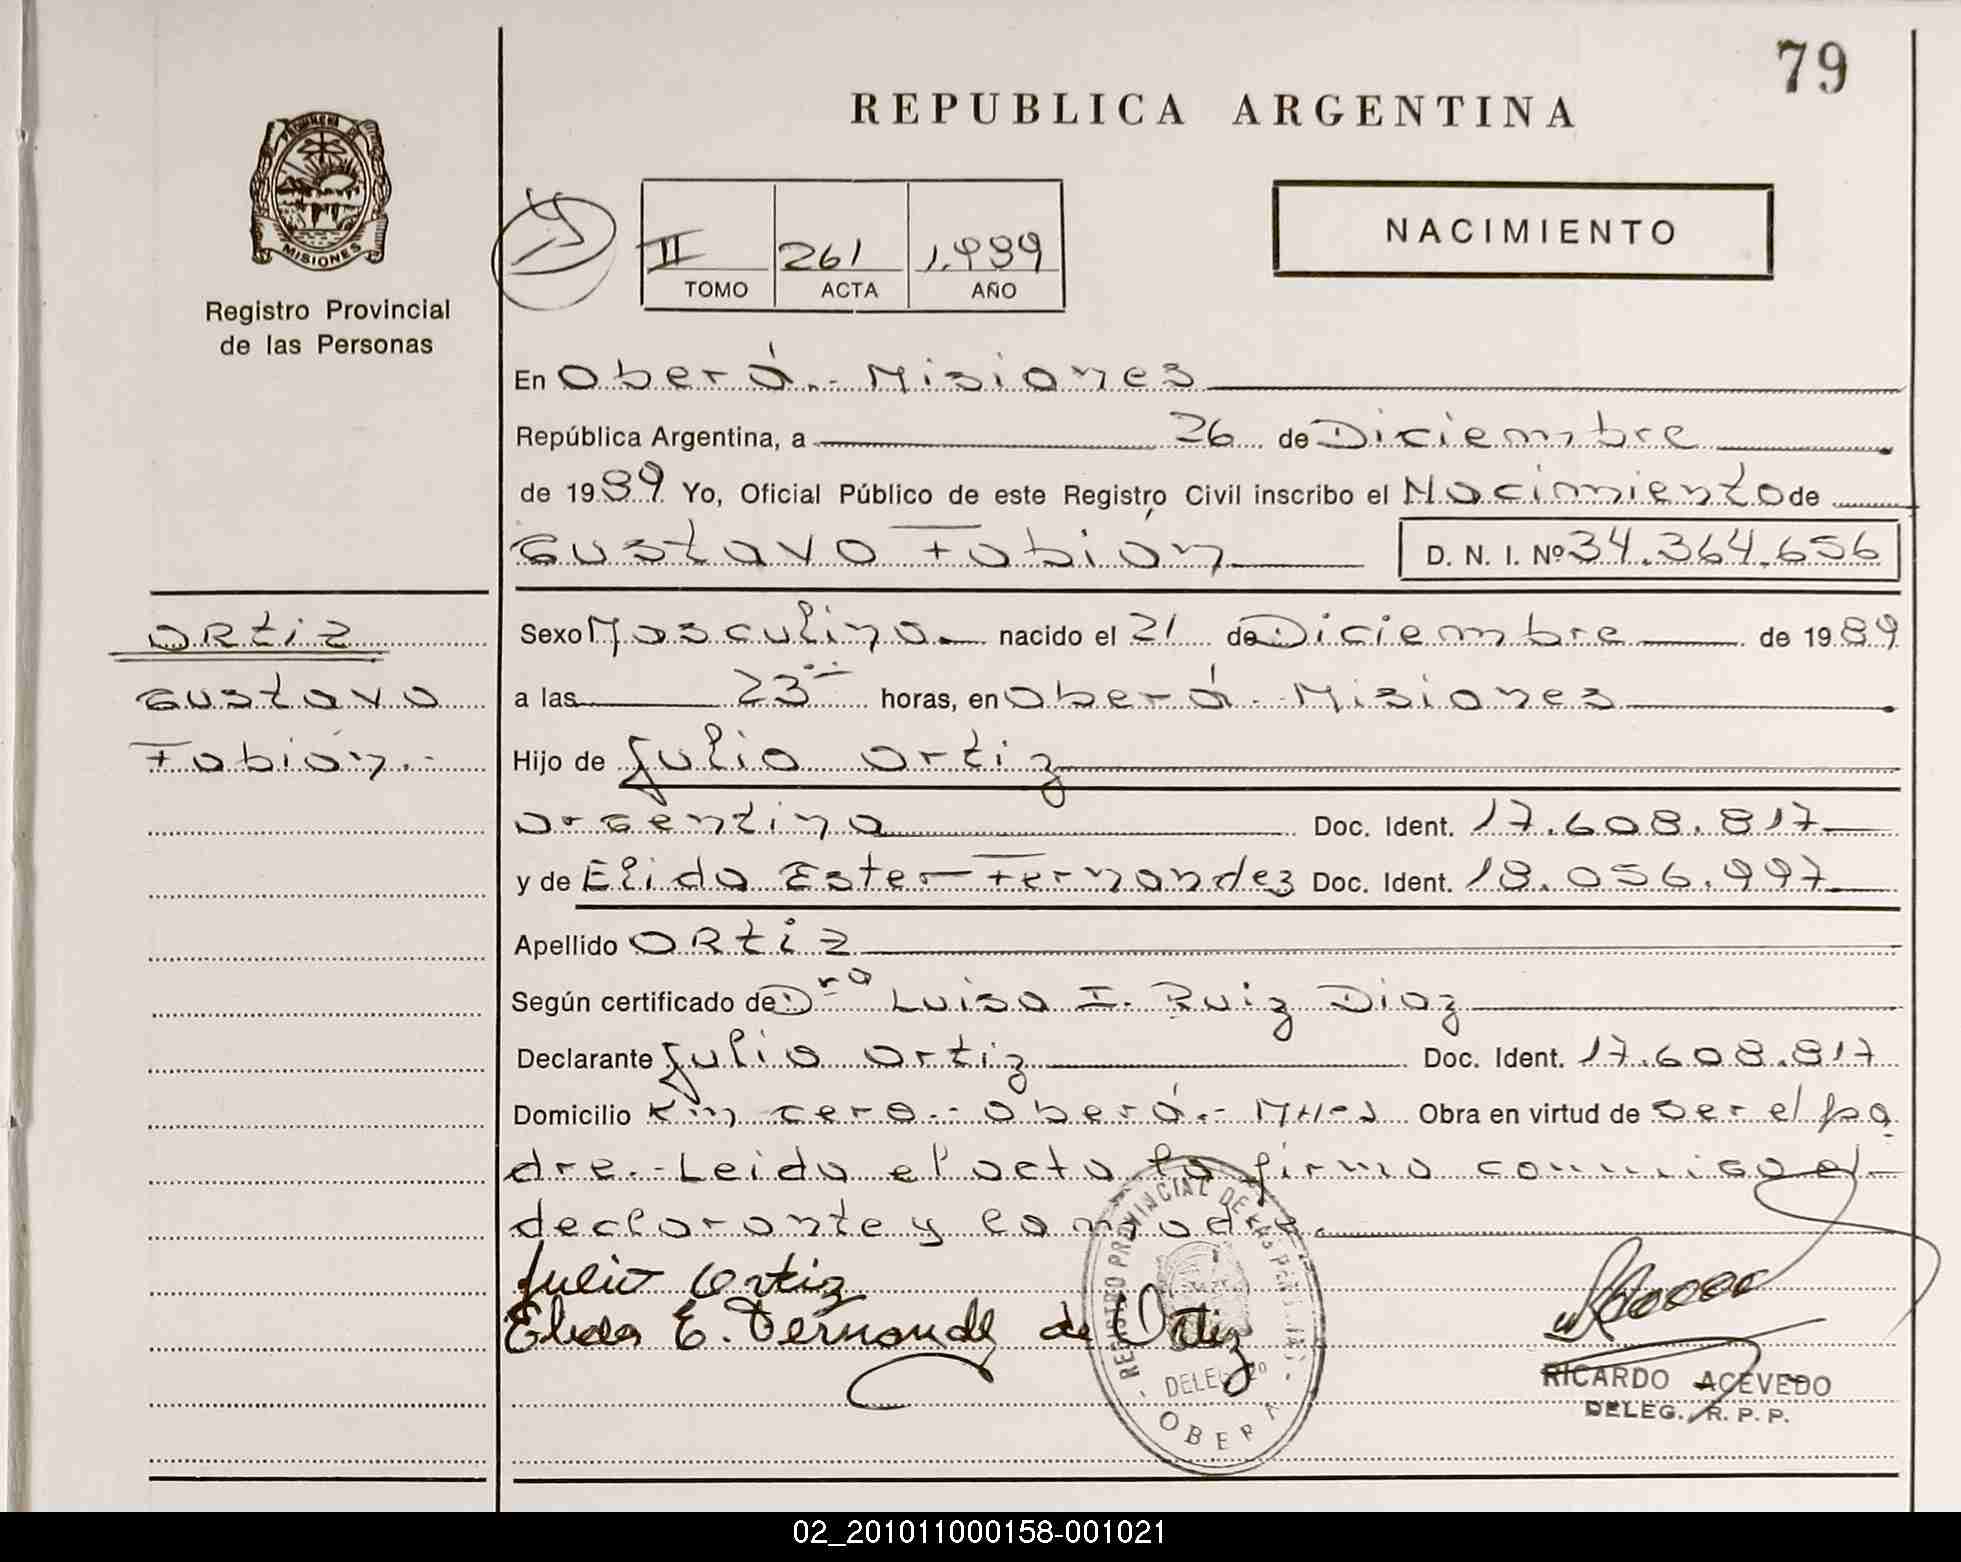 79
REPUBLICA ARGENTINA
NACIMIENTO
II 261 1.989
TOMO ACTA AÑO
MISIONES
Registro Provincial
de las Personas
En Oberá.- Misiones
República Argentina, a 26 de Diciembre
de 1989 Yo, Oficial Público de este Registro Civil inscribo el Nacimiento de
Gustavo Fabián D. N. I. Nº 34.364.656
ORtiz
Gustavo
Fabián.-
Sexo Masculino nacido el 21 de Diciembre de 1989
a las 23 horas, en Oberá.- Misiones
Hijo de Julio Ortiz
argentina Doc. Ident. 17.608.817
y de Elida Ester Fernandez Doc. Ident. 18.056.997
Apellido ORtiz
Según certificado de Dra Luisa I. Ruiz Diaz
Declarante Julio Ortiz Doc. Ident. 17.608.817
Domicilio Km cero.- Oberá.- Mnes Obra en virtud de ser el pa
dre.- Leida el acta la firma conmigo el
declarante y la madre.
Julio Ortiz
Elida E. Fernandez de Ortiz
REGISTRO PROVINCIAL DE LAS PERSONAS
DELEG.
OBERA
RICARDO ACEVEDO
DELEG. R. P. P.
02_201011000158-001021